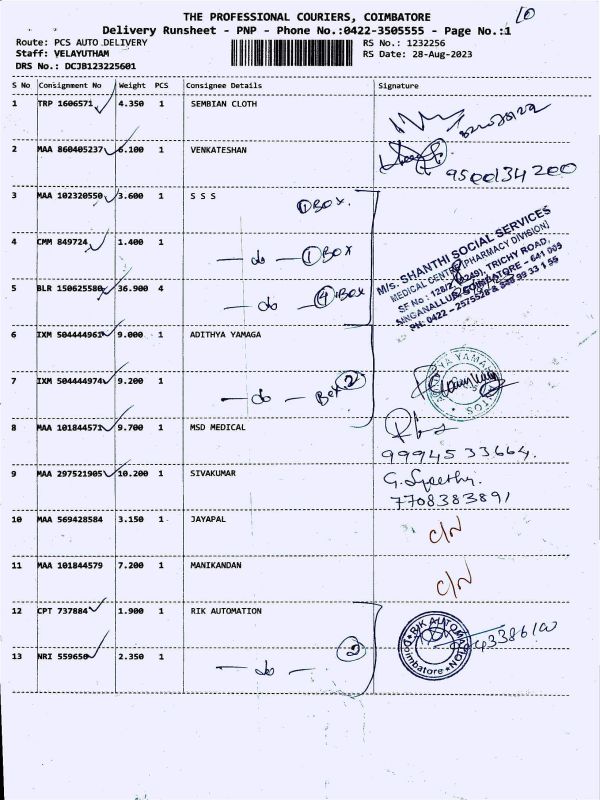 THE PROFESSIONAL COURIERS, COIMBATORE
10
Delivery Runsheet - PNP - Phone No.:0422-3505555 - Page No.:1
Route: PCS AUTO DELIVERY
RS No.: 1232256
Staff: VELAYUTHAM
RS Date: 28-Aug-2023
DRS No.: DCJB123225601
S No Consignment No Weight PCS Consignee Details Signature
1 TRP 1606571 4.350 1 SEMBIAN CLOTH
2 MAA 860405237 6.100 1 VENKATESHAN
9500134200
3 MAA 102320550 3.600 1 S S S
1 Box.
4 CMM 849724 1.400 1
— do — 1 Box
5 BLR 150625580 36.900 4
— do — 4 Box
M/s. SHANTHI SOCIAL SERVICES
MEDICAL CENTRE [PHARMACY DIVISION]
SINGANALLUR, COIMBATORE - 641 005
6 IXM 504444961 9.000 1 ADITHYA YAMAGA
7 IXM 504444974 9.200 1
— do — Box 2
8 MAA 101844571 9.700 1 MSD MEDICAL
9994533664.
9 MAA 297521905 10.200 1 SIVAKUMAR
7708383891
10 MAA 569428584 3.150 1 JAYAPAL
C/N
11 MAA 101844579 7.200 1 MANIKANDAN
C/N
12 CPT 737884 1.900 1 RIK AUTOMATION
RIK AUTOMATION
Coimbatore
13 NRI 559650 2.350 1
— do — 2